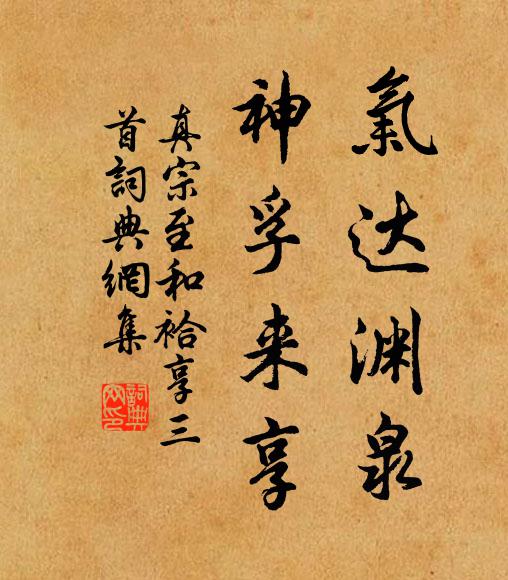 氣达渊泉
神孚来享
真宗至和祫享三
首詞典網集
詞典
网印